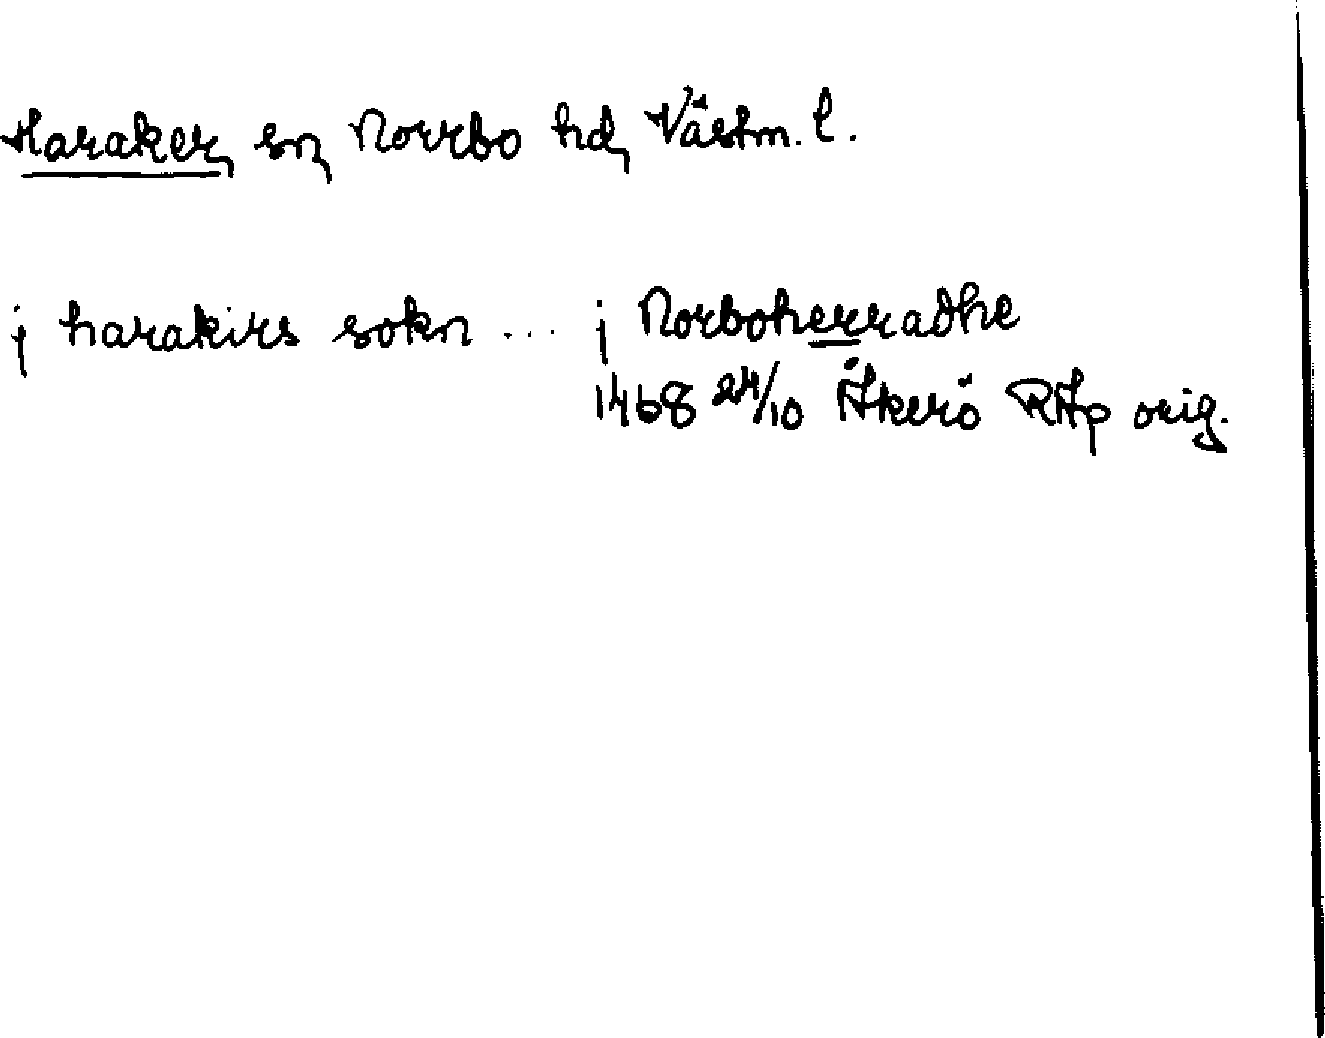 Haraker, sn, Norrbo hd, Västm. l.
j harakirs sokn ... j Norboherradhe
1468 24/10 Åkerö RAp orig.